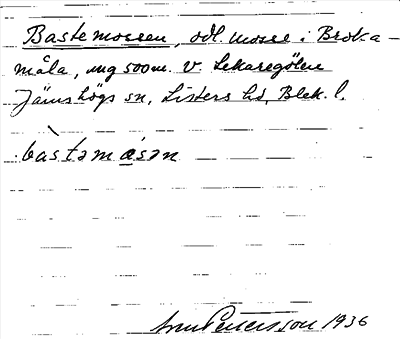 Bastemossen, odl. mosse i Broka-
måla, ung 500 m. v. Lekaregölen
Jämshögs sn, Listers hd, Blek. l.
bàstamåsan
Pettersson 1936